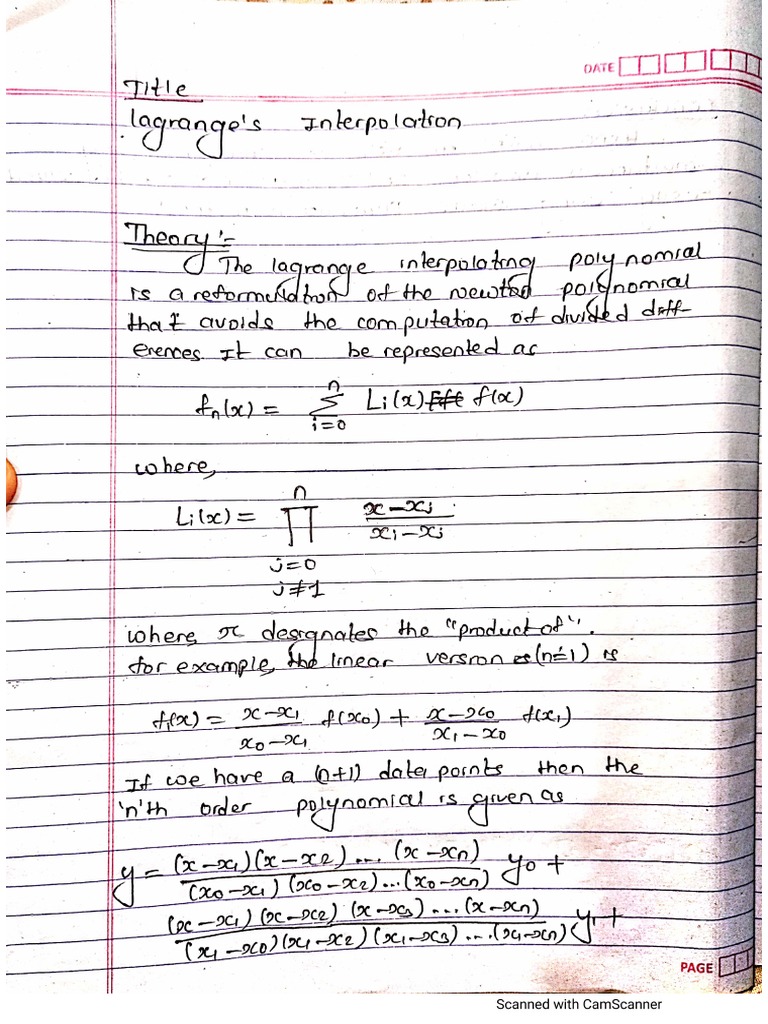 DATE
Title
Lagrange's Interpolation
Theory :-
The lagrange interpolating polynomial
is a reformulation of the Newton polynomial
that avoids the computation of divided diff-
erences. It can be represented as
fn(x) = n Σ i=0 Li(x) f(x)
where,
Li(x) = n Π j=0 j≠1 (x-xj)/(xi-xj)
where, π designates the "product of".
for example, the linear version (n=1) is
f1(x) = (x-x1)/(x0-x1) f(x0) + (x-x0)/(x1-x0) f(x1)
If we have a (n+1) data points then the
'n'th order polynomial is given as
y = (x-x1)(x-x2)...(x-xn)/(x0-x1)(x0-x2)...(x0-xn) y0 +
(x-x1)(x-x2)(x-x3)...(x-xn)/(x1-x0)(x1-x2)(x1-x3)...(x1-xn) y1 +
PAGE
Scanned with CamScanner